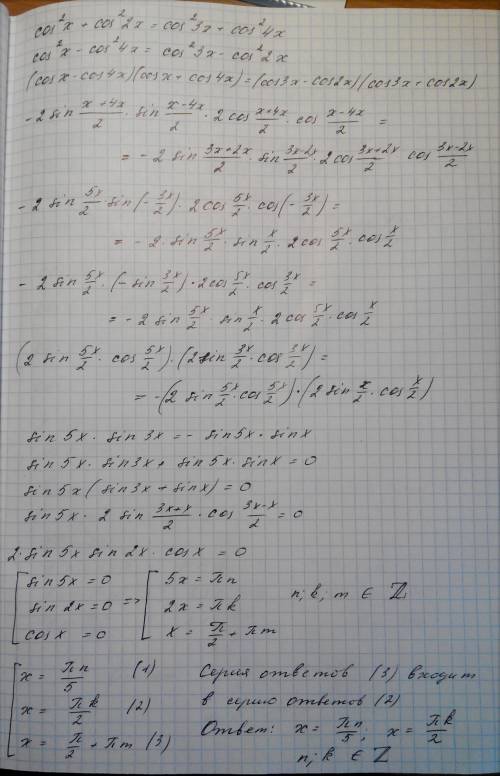 cos²x + cos²2x = cos²3x + cos²4x
cos²x - cos²4x = cos²3x - cos²2x
(cosx - cos4x)(cosx + cos4x) = (cos3x - cos2x)(cos3x + cos2x)
-2 sin (x+4x)/2 · sin (x-4x)/2 · 2cos (x+4x)/2 · cos (x-4x)/2 =
= -2 sin (3x+2x)/2 · sin (3x-2x)/2 · 2cos (3x+2x)/2 cos (3x-2x)/2
-2 sin 5x/2 · sin(-3x/2) · 2cos 5x/2 · cos(-3x/2) =
= -2 · sin 5x/2 · sin x/2 · 2cos 5x/2 · cos x/2
-2 sin 5x/2 · (-sin 3x/2) · 2cos 5x/2 · cos 3x/2 =
= -2 sin 5x/2 · sin x/2 · 2cos 5x/2 · cos x/2
(2 sin 5x/2 · cos 5x/2) · (2 sin 3x/2 · cos 3x/2) =
= -(2 sin 5x/2 · cos 5x/2) · (2 sin x/2 · cos x/2)
sin 5x · sin 3x = - sin5x · sinx
sin 5x · sin3x + sin 5x · sinx = 0
sin 5x (sin3x + sinx) = 0
sin 5x · 2 sin (3x+x)/2 · cos (3x-x)/2 = 0
2 · sin 5x sin 2x · cosx = 0
[ sin5x = 0 => [ 5x = πn
sin 2x = 0 2x = πk n; k; m ∈ ℤ
cosx = 0 x = π/2 + πm
[ x = πn/5 (1) Серия ответов (3) входит
x = πk/2 (2) в серию ответов (2)
x = π/2 + πm (3) Ответ: x = πn/5; x = πk/2
n; k ∈ ℤ